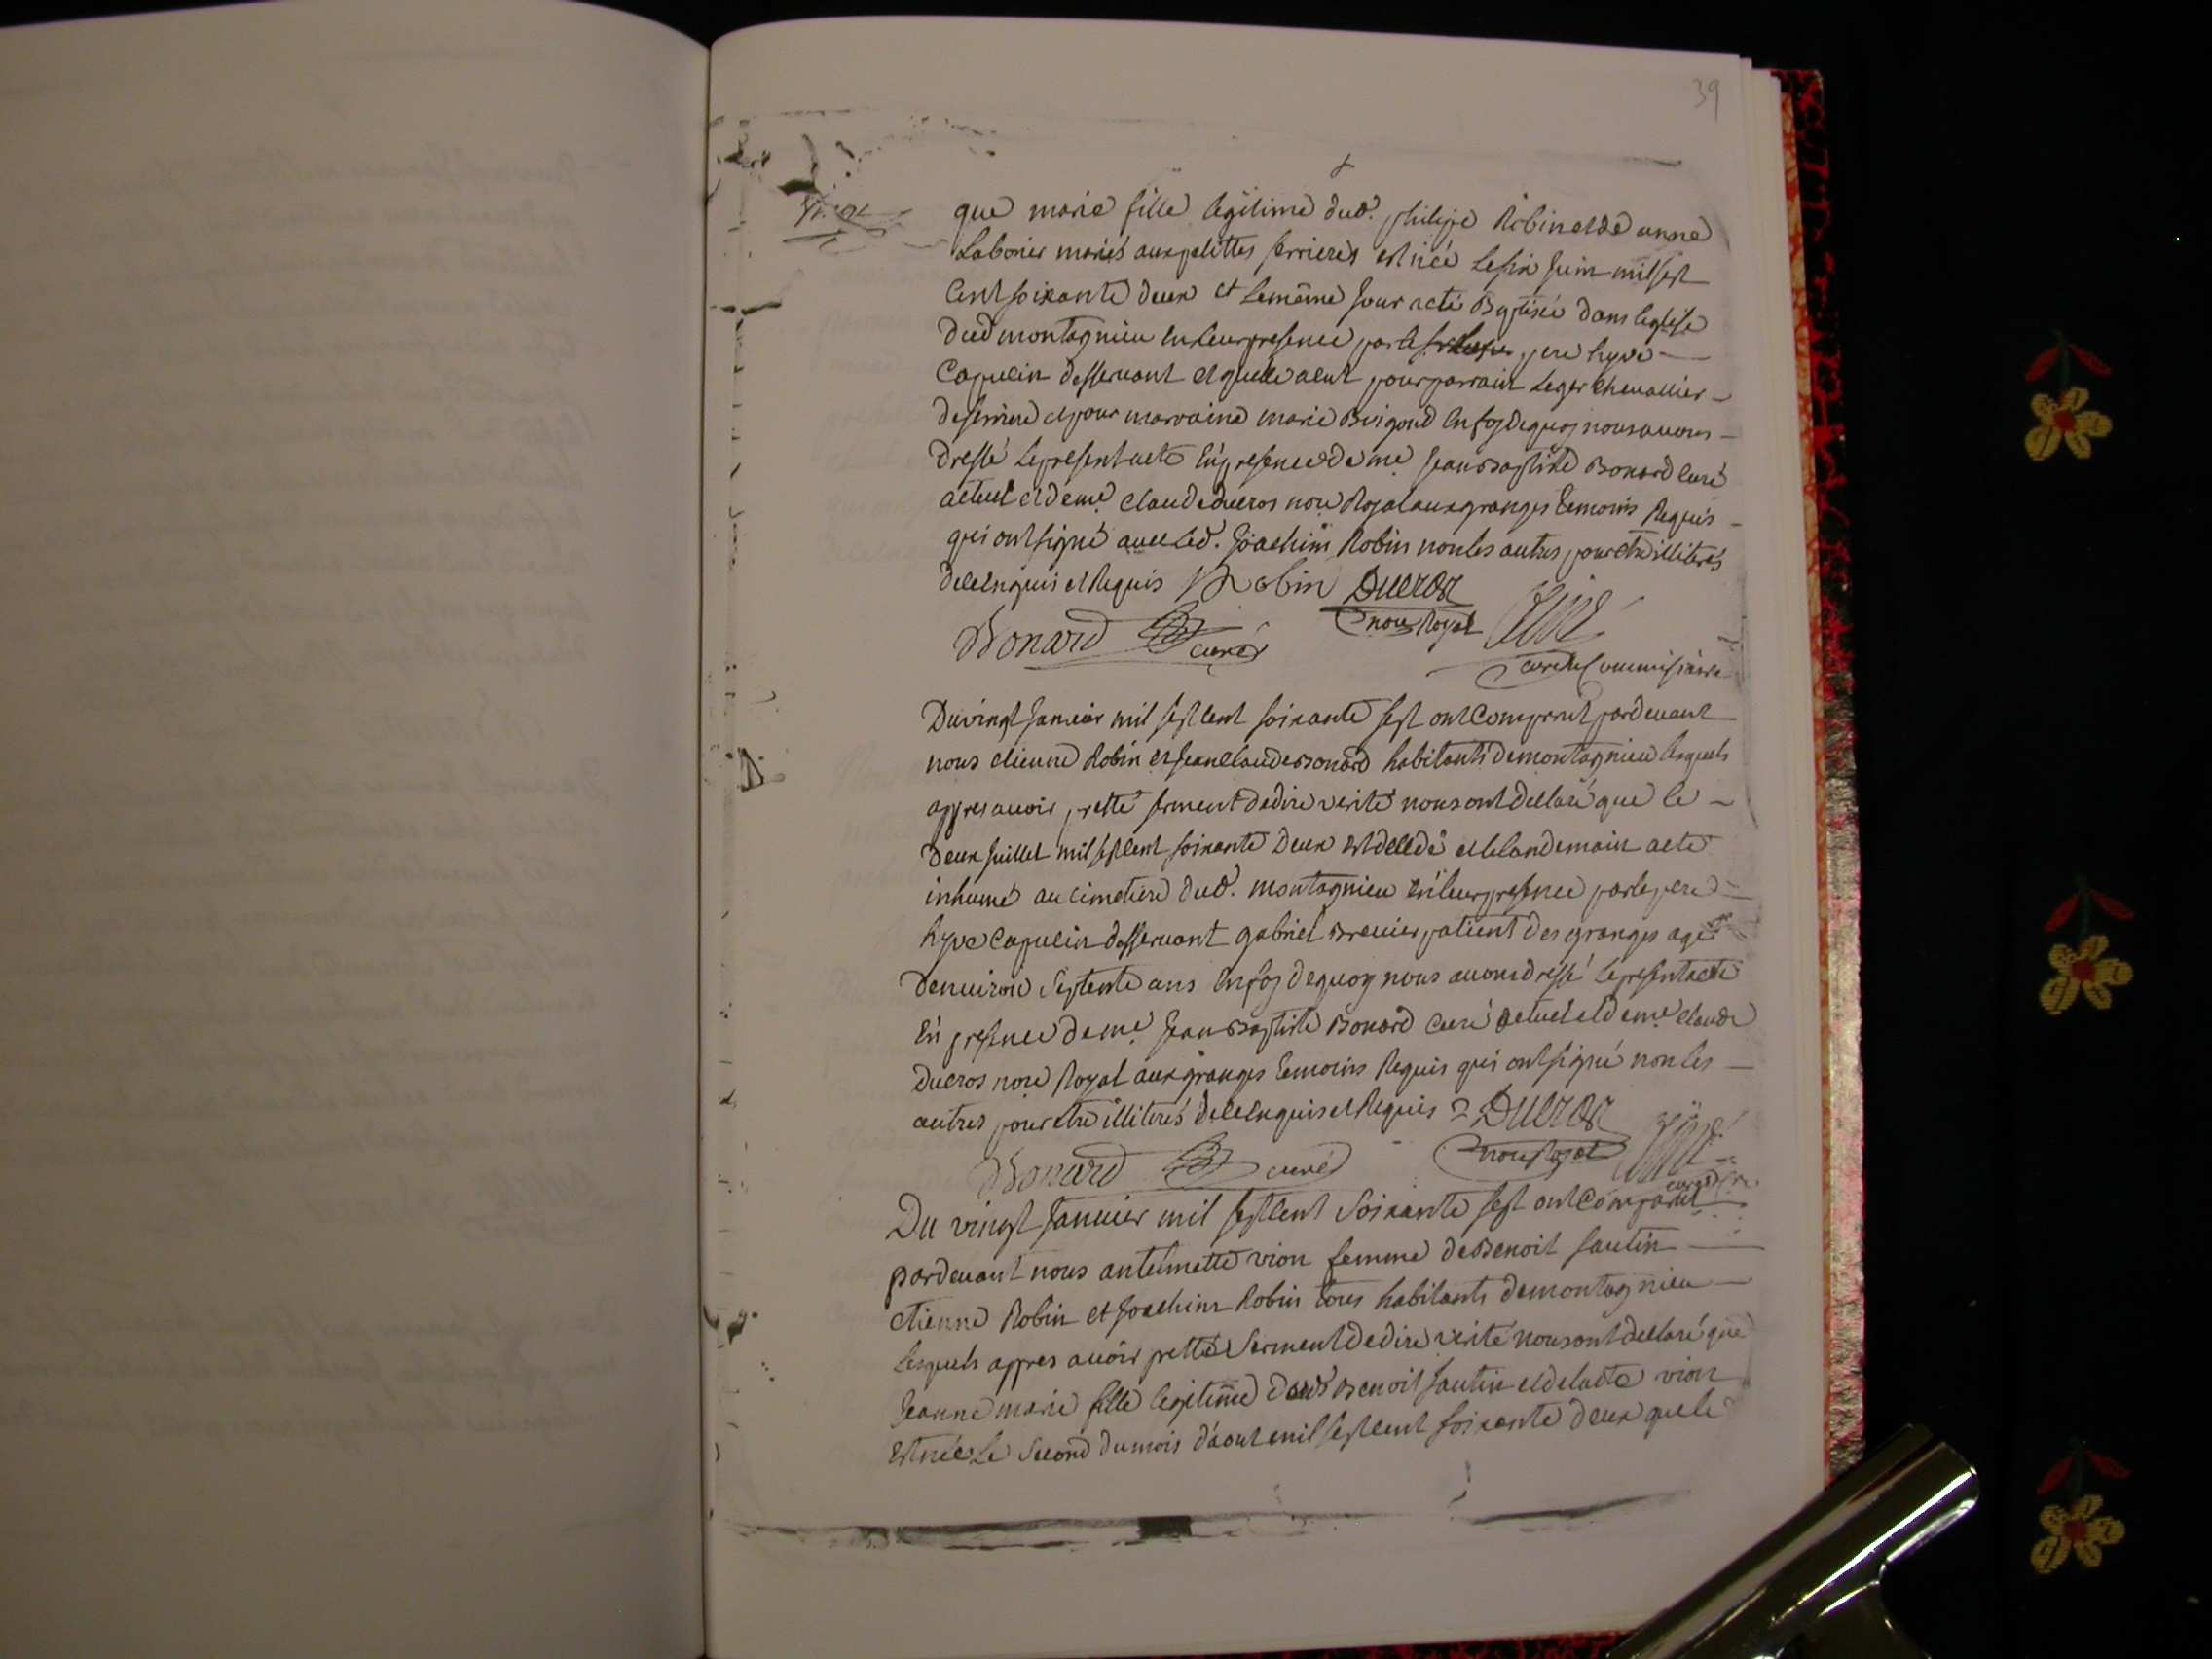 39
que marie fille legitime dud. philipe Robin et de anne
Laborier mariés aux petittes ferrieres est née le six juin mil sept
cent soixante deux et le même jour a eté Baptisée dans leglise
dud montagnieu en leur presence par le pere hyve
Capucin desservant et quelle a eut pour parrain Leger chevallier
de ferriere et pour marraine marie Brigond en foy de quoy nous avons
dressé le present acte En presence de me Jean Baptiste Bonard curé
actuel et de me. Claude ducros nore Royal aux granges temoins Requis
qui ont signé avec led. Joachim Robin non les autres pour etre illiterés
de ce enquis et Requis J Robin Ducros
nore Royal
Bonard curé
curé et Commissaire
Du vingt Janvier mil sept cent soixante sept ont Comparut pardevant
nous etienne Robin et Jean Claude Bonard habitants de montagnieu lesquels
appres avoir pretté serment de dire verité nous ont declaré que le
deux Juillet mil sept cent soixante deux est decedé et le landemain a eté
inhumé au cimetiere dud. montagnieu en leur presence par le pere
hyve Capucin desservant gabriel Brevier patient des granges agé
denviron septente ans En foy de quoy nous avons dressé le present acte
En presence de me. Jean Baptiste Bonard curé actuel et de me. Claude
Ducros nore Royal aux granges temoins Requis qui ont signé non les
autres pour etre illiterés de ce enquis et Requis Ducros
Bonard curé nore Royal
Du vingt Janvier mil sept cent soixante sept ont Comparut
pardevant nous antelmette vion femme de Benoit fautin
etienne Robin et Joachim Robin tous habitants de montagnieu
lesquels appres avoir pretté serment de dire verité nous ont declaré que
Jeanne marie fille legitime dud Benoit fautin et de ladte vion
est née le second du mois d'aout mil sept cent soixante deux que le